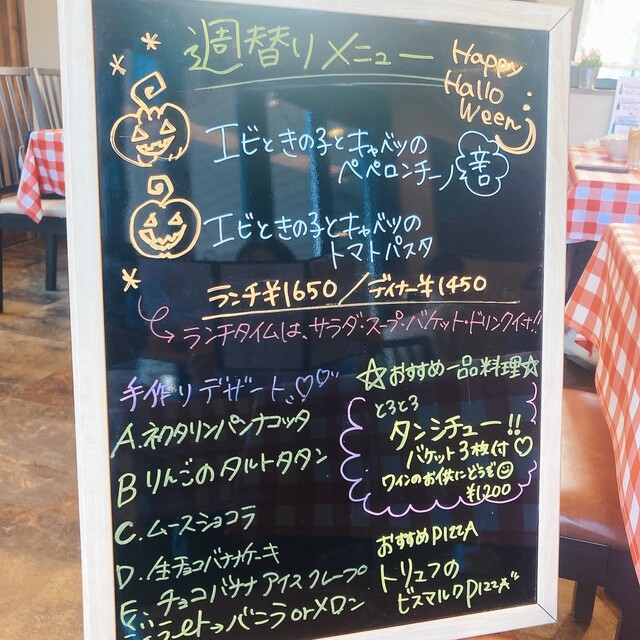 週替りメニュー
Happy
Hallo
Ween
エビときの子とキャベツの
ペペロンチーノ 辛口
エビときの子とキャベツの
トマトパスタ
ランチ¥1650/ディナー¥1450
ランチタイムは、サラダ・スープ・バケット・ドリンク付!!
手作りデザート、♡♡
A.ネクタリンパンナコッタ
B りんごのタルトタタン
C.ムースショコラ
D.生チョコバナナケーキ
E.チョコバナナアイスクレープ
→バニラorメロン
☆おすすめ一品料理☆
とろとろ
タンシチュー!!
バケット3枚付♡
ワインのお供にどうぞ☺
¥1,200
おすすめPIZZA
トリュフの
ビスマルクPIZZA"